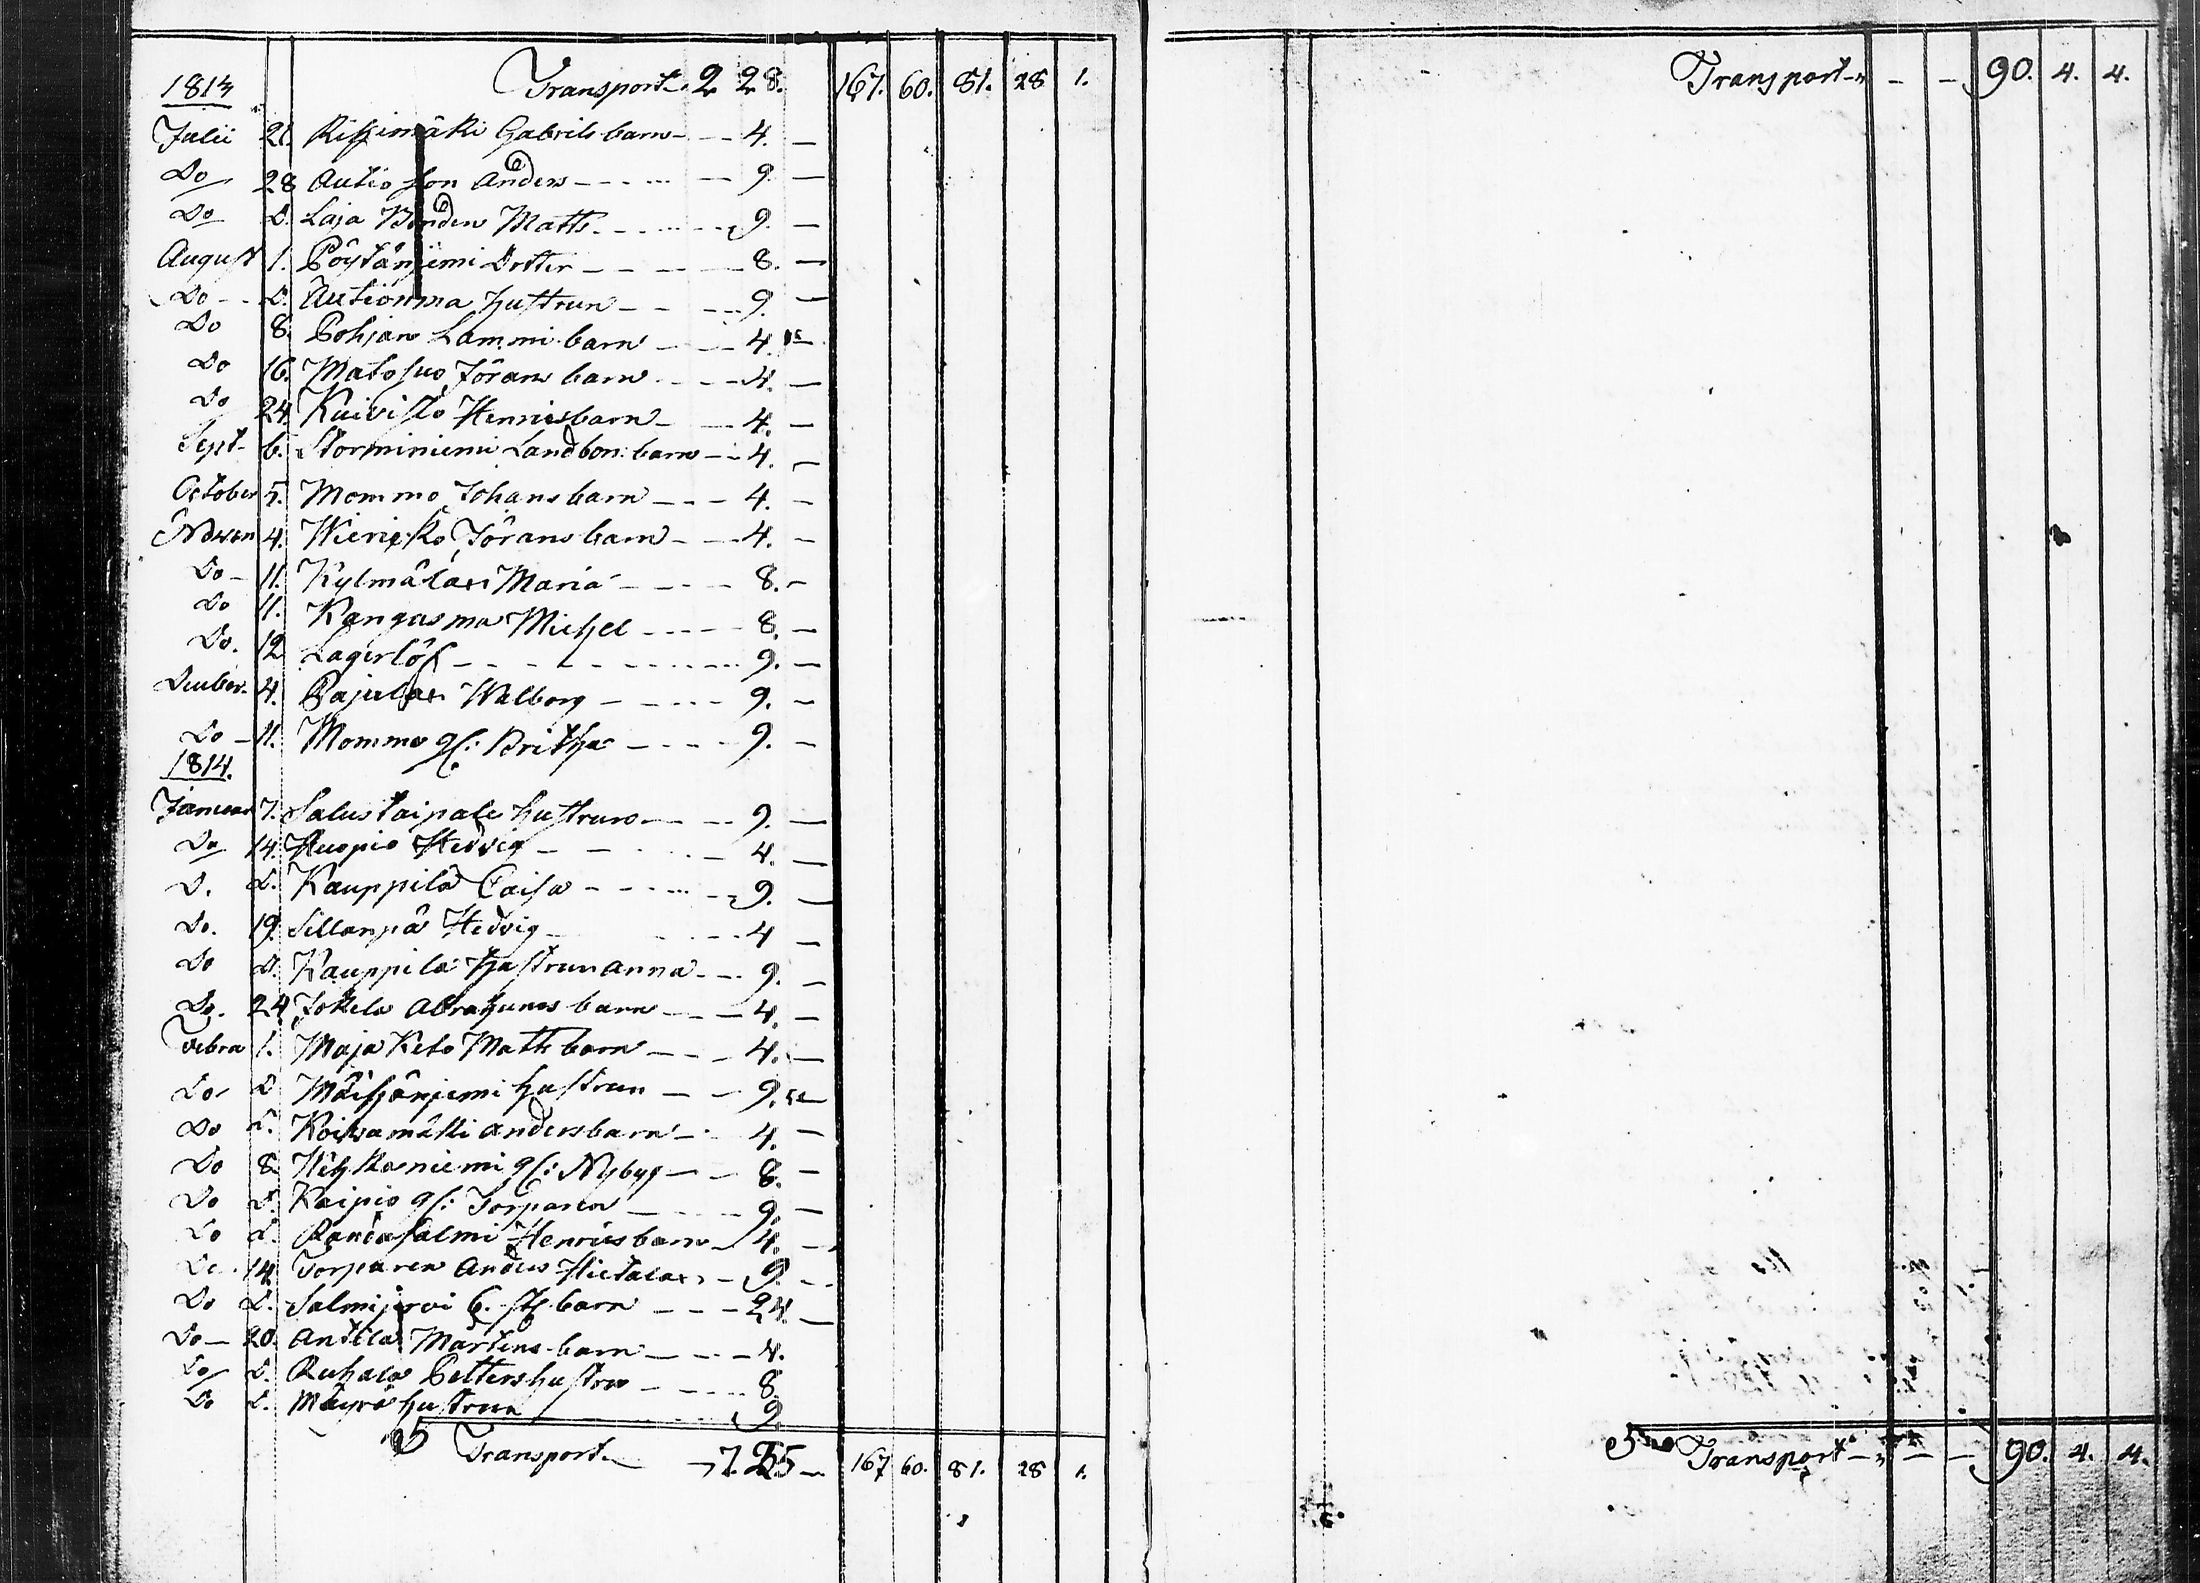 1813 Transport 2 28. 167. 60. 81. 28 1.
Julii 21. Gabriels barn 4. —
Do 28 Autio son Anders 9. —
Do D. Laja Bonden Matts 9. —
August 1. Pöytäniemi Dotter 8. —
Do D. Autiönma hustrun 9. —
Do 8. Pohjan Lammi barn 4. —
Do 16. Matosuo Jörans barn 4. —
Do 24. Kuivisto Henrics barn 4. —
Sept 6. Storminiemi Landbon: barn 4. —
October 5. Mommo Johans barn 4. —
4. Jörans barn 4. —
Do 11. Maria 8. —
Do 11. Kangasma Michel 8. —
Do. 12 Lagerlöf 9. —
4. Walborg 9. —
Do 11. Mommo gl: Britha 9. —
1814.
Januar 7. Salustaipale hustrun 9. —
Do 14. Kuopio Hedvig 4. —
D. D. Kauppila Caisa 9. —
Do. 19. Sillanpä Hedvig 4 —
Do D. Kauppila hustrun Anna 9. —
Do. 24. Jokela Abrahams barn 4. —
Febra 1. Maja Keto Matts barn 4. —
Do D hustrun 9. —
Do D. Koivamäki Anders barn 4. —
Do 8. gl: Nybyg 8. —
Do D. Kaipio gl: Torparen 9. —
Do D. Henrics barn 4. —
Do 14. Torparen Anders Hietala 9. —
Do D. Salmijervi 6. st barn 24. —
Do 20. Anttila Mårtens barn 4.
Do D. Ruhala Petters hustru 8.
Do D. Mäyrä hustrun 9.
Transport 7. 25 — 167 60. 81. 28 1.
Transport — — 90. 4. 4.
Transport — — 90. 4. 4.